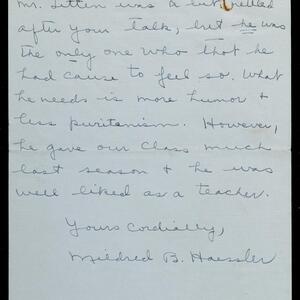 Mr. Litten was a bit nettled
after your talk, but he was
the only one who thot he
had cause to feel so. What
he needs is more humor +
less puritanism. However,
he gave our class much
last season + he was
well liked as a teacher.
Yours Cordially,
Mildred B. Haessler